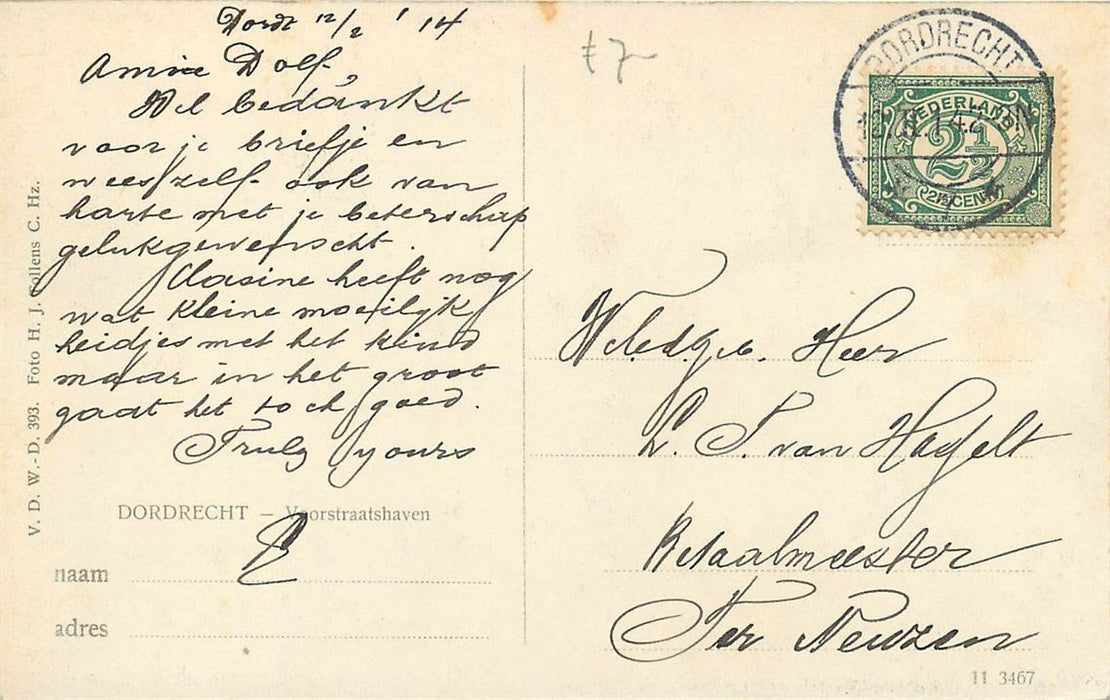 Dordt 12/2 '14
Amice Dolf,
Wel bedankt
voor je briefje en
wees zelf ook van
harte met je beterschap
gelukgewenscht.
Clasine heeft nog
wat kleine moeilijk
heidjes met het kind
maar in het groot
gaat het toch goed.
Truly yours
V. D. W.-D. 393. Foto H. J. Tollens C. Hz.
DORDRECHT — Voorstraatshaven
naam
adres
£7-
DORDRECHT
NEDERLAND
2½
2½ CENT
Weledgeb. Heer
L. T. van Hasselt
Betaalmeester
Ter Neuzen
11 3467